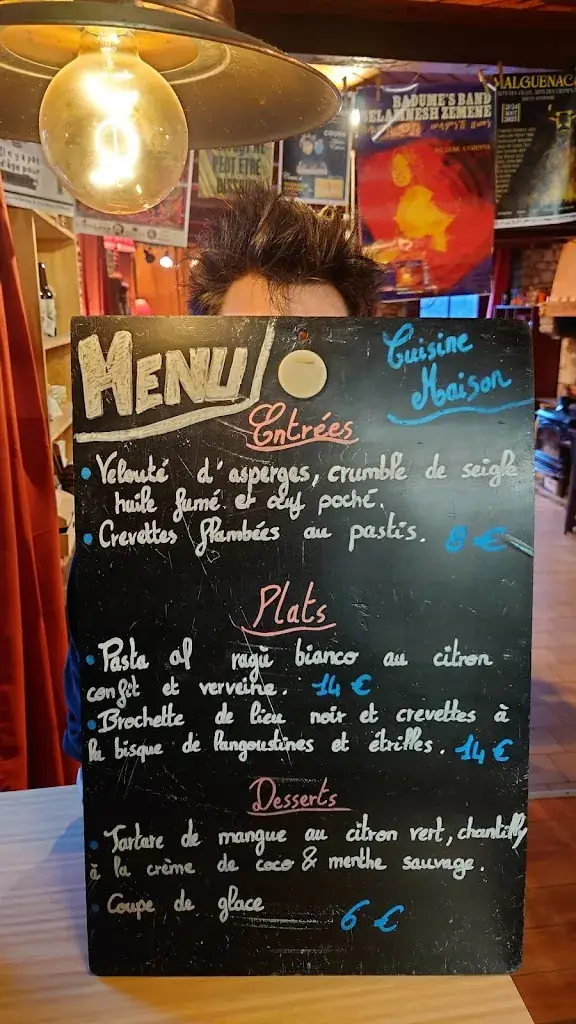 BADUME'S BAND
SELAMNESH ZEMENE
MALGUENAC
PEUT ÊTRE
MENU
Cuisine
Maison
Entrées
• Velouté d'asperges, crumble de seigle
huile fumé et œuf poché.
• Crevettes flambées au pastis. 8 €
Plats
• Pasta al ragù bianco au citron
confit et verveine. 14 €
• Brochette de lieu noir et crevettes à
la bisque de langoustines et étrilles. 14 €
Desserts
• Tartare de mangue au citron vert, chantilly
à la crème de coco & menthe sauvage.
• Coupe de glace 6 €